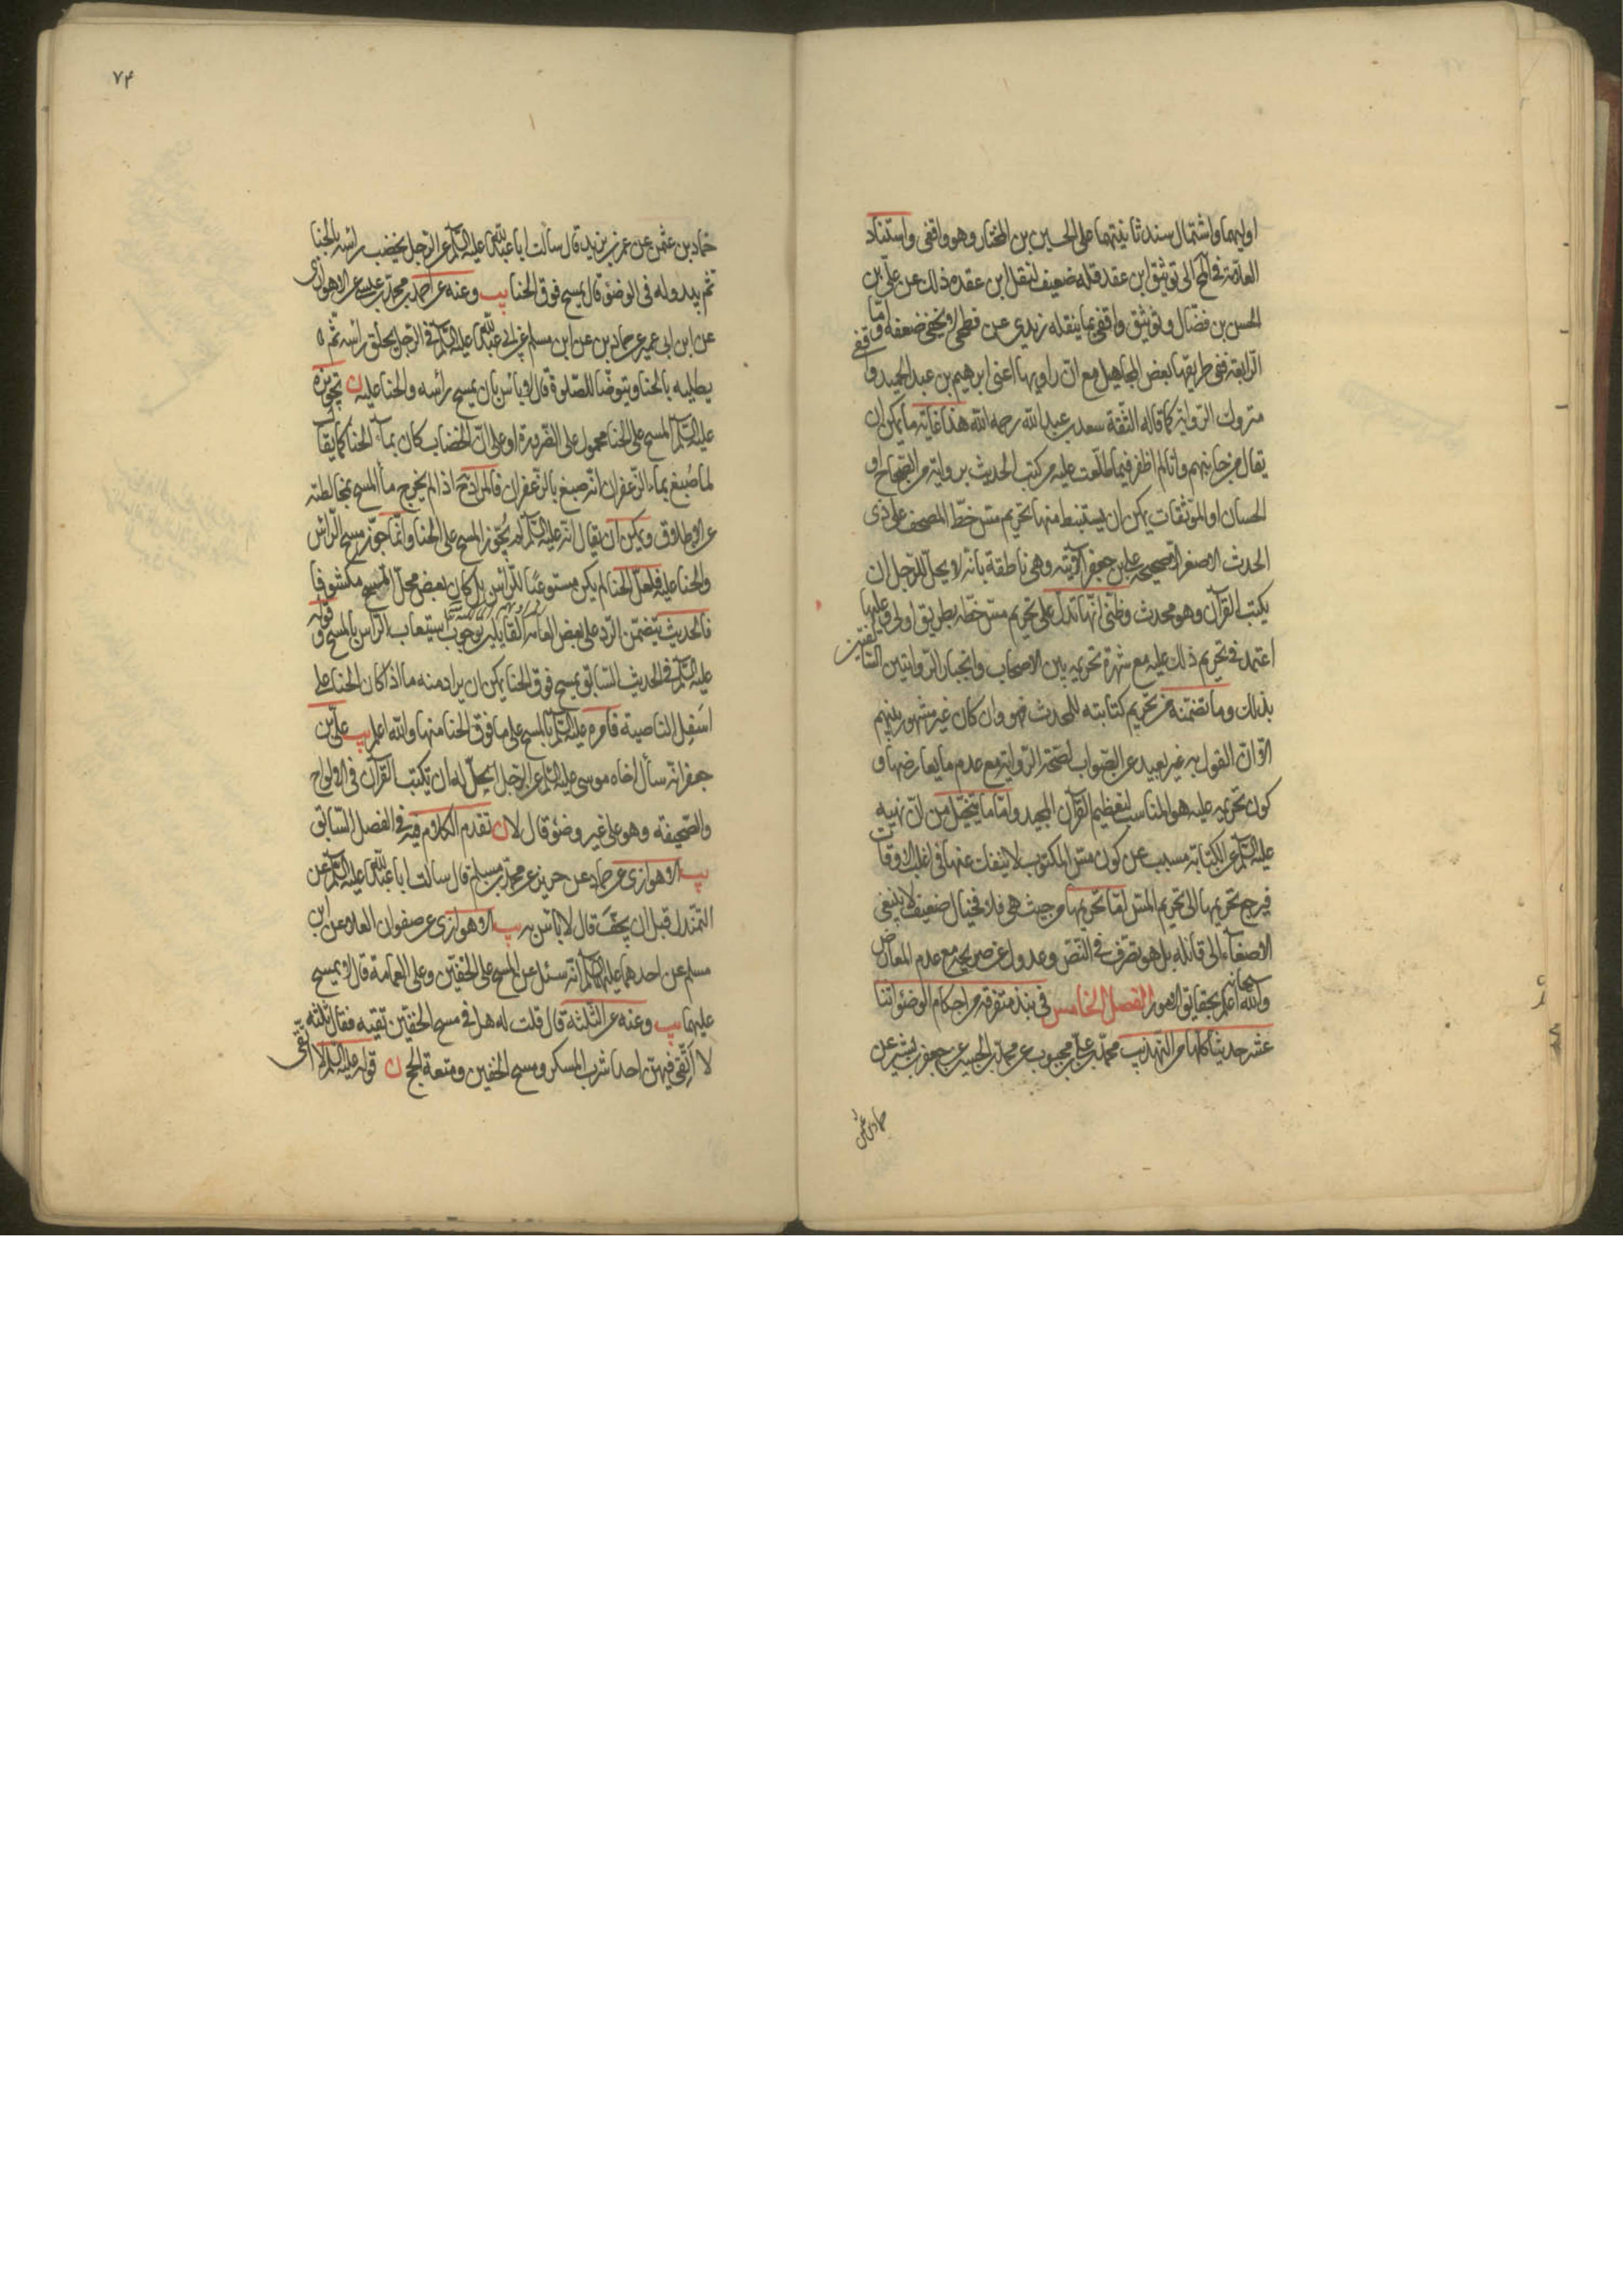 اوليهما واشتمال سند ثانيتهما على الحسين بن المختار وهو واقفى واستناد
العلامة فى المخ الى توثيق ابن عقده له ضعيف لنقل ابن عقده ذلك عن على بن
الحسن بن فضال وتوثيق واقفى بما ينقله زيدى عن فطحى لا يخفى ضعفه واما
الرابعة ففى طريقها بعض المجاهيل مع ان راويها اعنى ابرهيم بن عبد الحميد واقفى
متروك الرواية كما قاله الثقة سعد بن عبد الله رحمه الله هذا غاية ما يمكن ان
يقال من جانبهم وانا لم اظفر فيما اطلعت عليه من كتب الحديث برواية من الصحاح او
الحسان او الموثقات يمكن ان يستنبط منها تحريم مس خط المصحف على ذى
الحدث الاصغر الا صحيحة على بن جعفر الاتية وهى ناطقة بانه لا يحل للرجل ان
يكتب القرآن وهو محدث وظنى انها تدل على تحريم مس خطه بطريق اولى وعليها
اعتمد فى تحريم ذلك عليه مع شهرة تحريمه بين الاصحاب وانجبار الروايتين السالفتين
بذلك وما تضمنته من تحريم كتابته للمحدث فهو وان كان غير مشهور بينهم
الا ان القول به غير بعيد عن الصواب لصحة الرواية مع عدم ما يعارضها و
كون تحريمه عليه هو المناسب لتعظيم القرآن المجيد واما ما يتخيل من ان نهيه
عليه السلم عن الكتابة مسبب عن كون مس المكتوب لا ينفك عنها فى اغلب الاوقات
فيرجع تحريمها الى تحريم المس لا تحريمها من حيث هى فلا فخيال ضعيف لا ينبغى
الاصغاء الى قائله بل هو تصرف فى النص وعدول عن صريحه مع عدم المعارض
والله سبحانه اعلم بحقايق الامور الفصل الخامس فى نبذ متفرقة من احكام الوضوء اثنا
عشر حديثا كلها من التهذيب محمد بن على بن محبوب عن محمد بن الحسين عن جعفر بن بشير عن
حماد بن عثمن
٧٤
حماد بن عثمن عن عمر بن يزيد قال سالت ابا عبد الله عليه السلم عن الرجل يخضب راسه بالحنا
ثم يبدو له فى الوضوء قال يمسح فوق الحنا يب وعنه عن احمد بن محمد بن عيسى عن الاهوازى
عن ابن ابى عمير عن حماد بن عن ابن مسلم عن ابى عبد الله عليه السلم فى الرجل يحلق راسه ثم
يطليه بالحنا ويتوضأ للصلوة قال لا باس بان يمسح راسه والحنا عليه ن تجويزه
عليه السلم المسح على الحنا محمول على الضرورة او على ان الخضاب كان بماء الحنا كما يقال
لما صُبغ بماء الزعفران انه صبغ بالزعفران فالمراد ح اذا لم يخرج ماء المسح بمخالطته
عن الاطلاق ويمكن ان يقال انه عليه السلم لم يُجوّز المسح على الحنا وانما جوز مسح الراس
والحنا عليه فلعل الحنا لم يكن مستوعبًا للراس بل كان بعض محل المسح مكشوفا
فالحديث يتضمن الرد على بعض العامه القايلين بوجوب استيعاب الراس بالمسح وقوله
عليه السلم فى الحديث السابق يمسح فوق الحنا يمكن ان يراد منه ما اذا كان الحنا على
اسفل الناصية فامره عليه السلم بالمسح على ما فوق الحنا منها والله اعلم يب على بن
جعفر انه سأل اخاه موسى عليه السلم عن الرجل ايحل له ان يكتب القرآن فى الالواح
والصحيفة وهو على غير وضوء قال لا ن تقدم الكلام فيه فى الفصل السابق
يب الاهوازى عن حماد عن حريز عن محمد بن مسلم قال سالت ابا عبد الله عليه السلم عن
التمندل قبل ان يجفّ قال لا باس به يب الاهوازى عن صفوان عن العلاء عن ابن
مسلم عن احدهما عليهما السلم انه سئل عن المسح على الخفين وعلى العمامة قال لا يمسح
عليهما يب وعنه عن الثلثة قال قلت له هل فى مسح الخفين تقيه فقال ثلثه
لا اتقى فيهن احدا شرب المسكر ومسح الخفين ومتعة الحج ن قوله عليه السلم لا اتقى